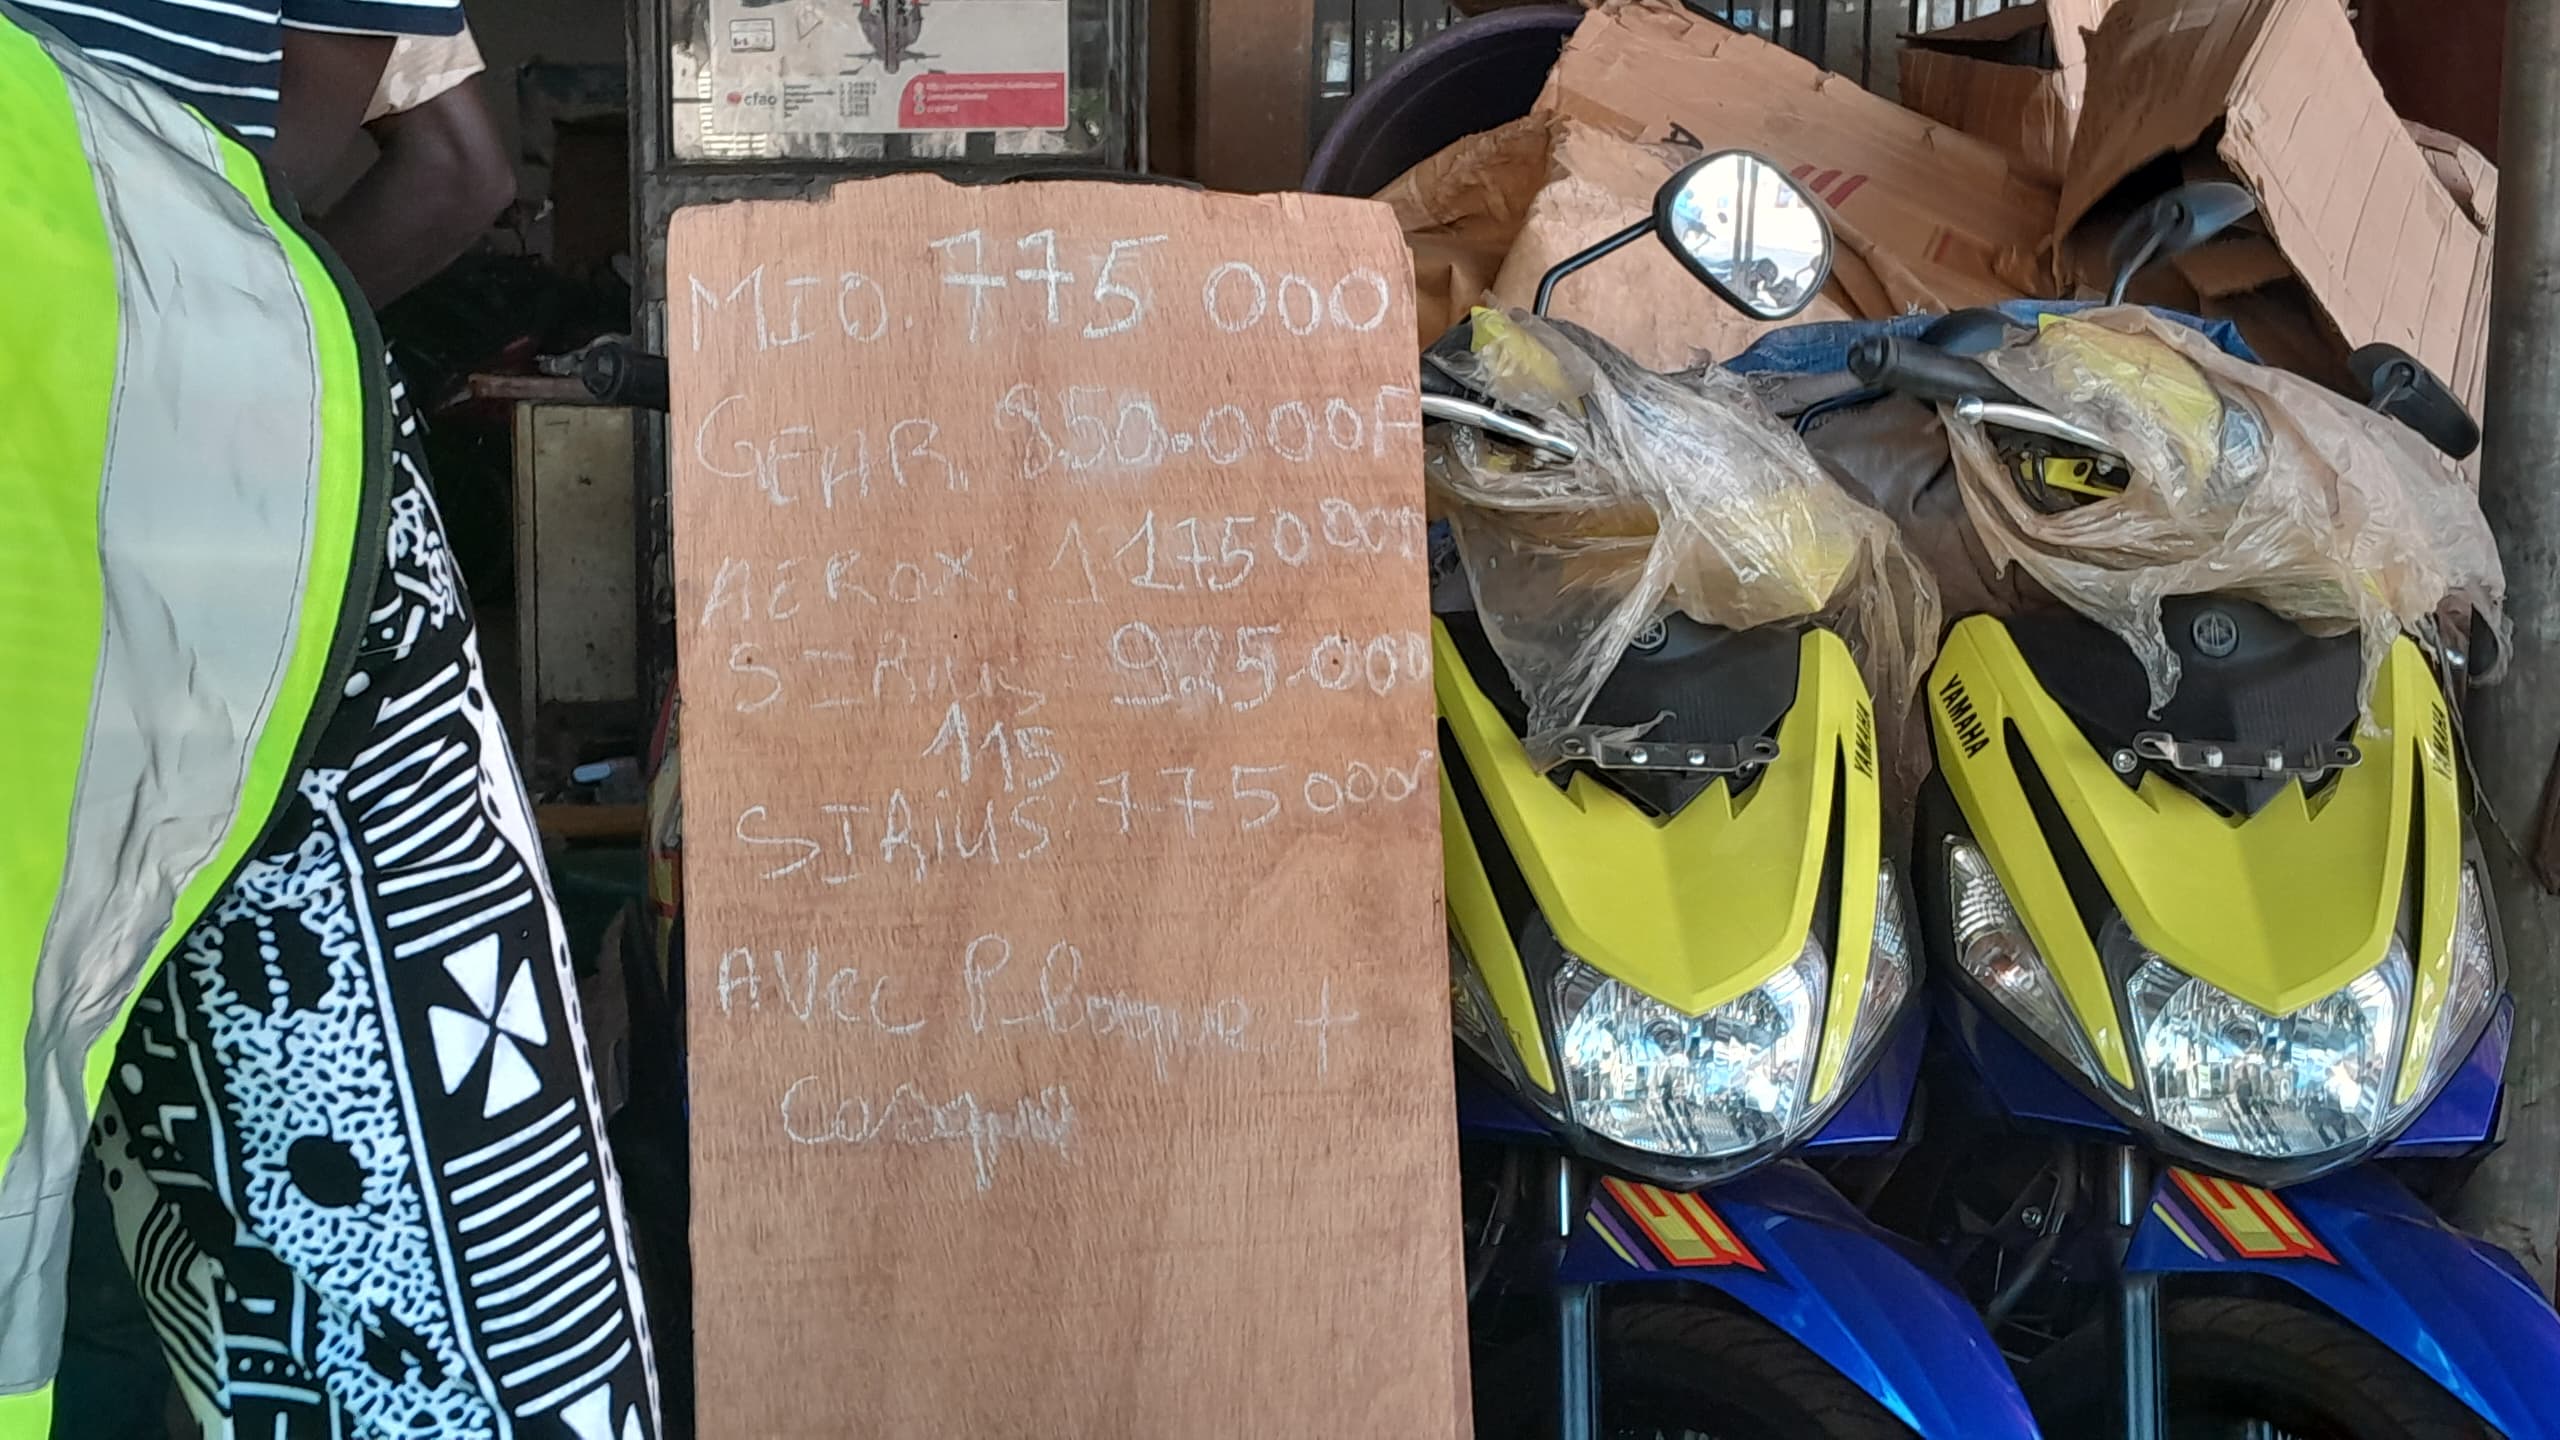 cfao
MIO. 775 000
GEAR. 850.000F
AEROX. 1 175 000F
SIRIUS 925.000
115
SIRIUS: 775 000F
AVEC Plaque +
Casque
YAMAHA
YAMAHA
YAMAHA
YAMAHA